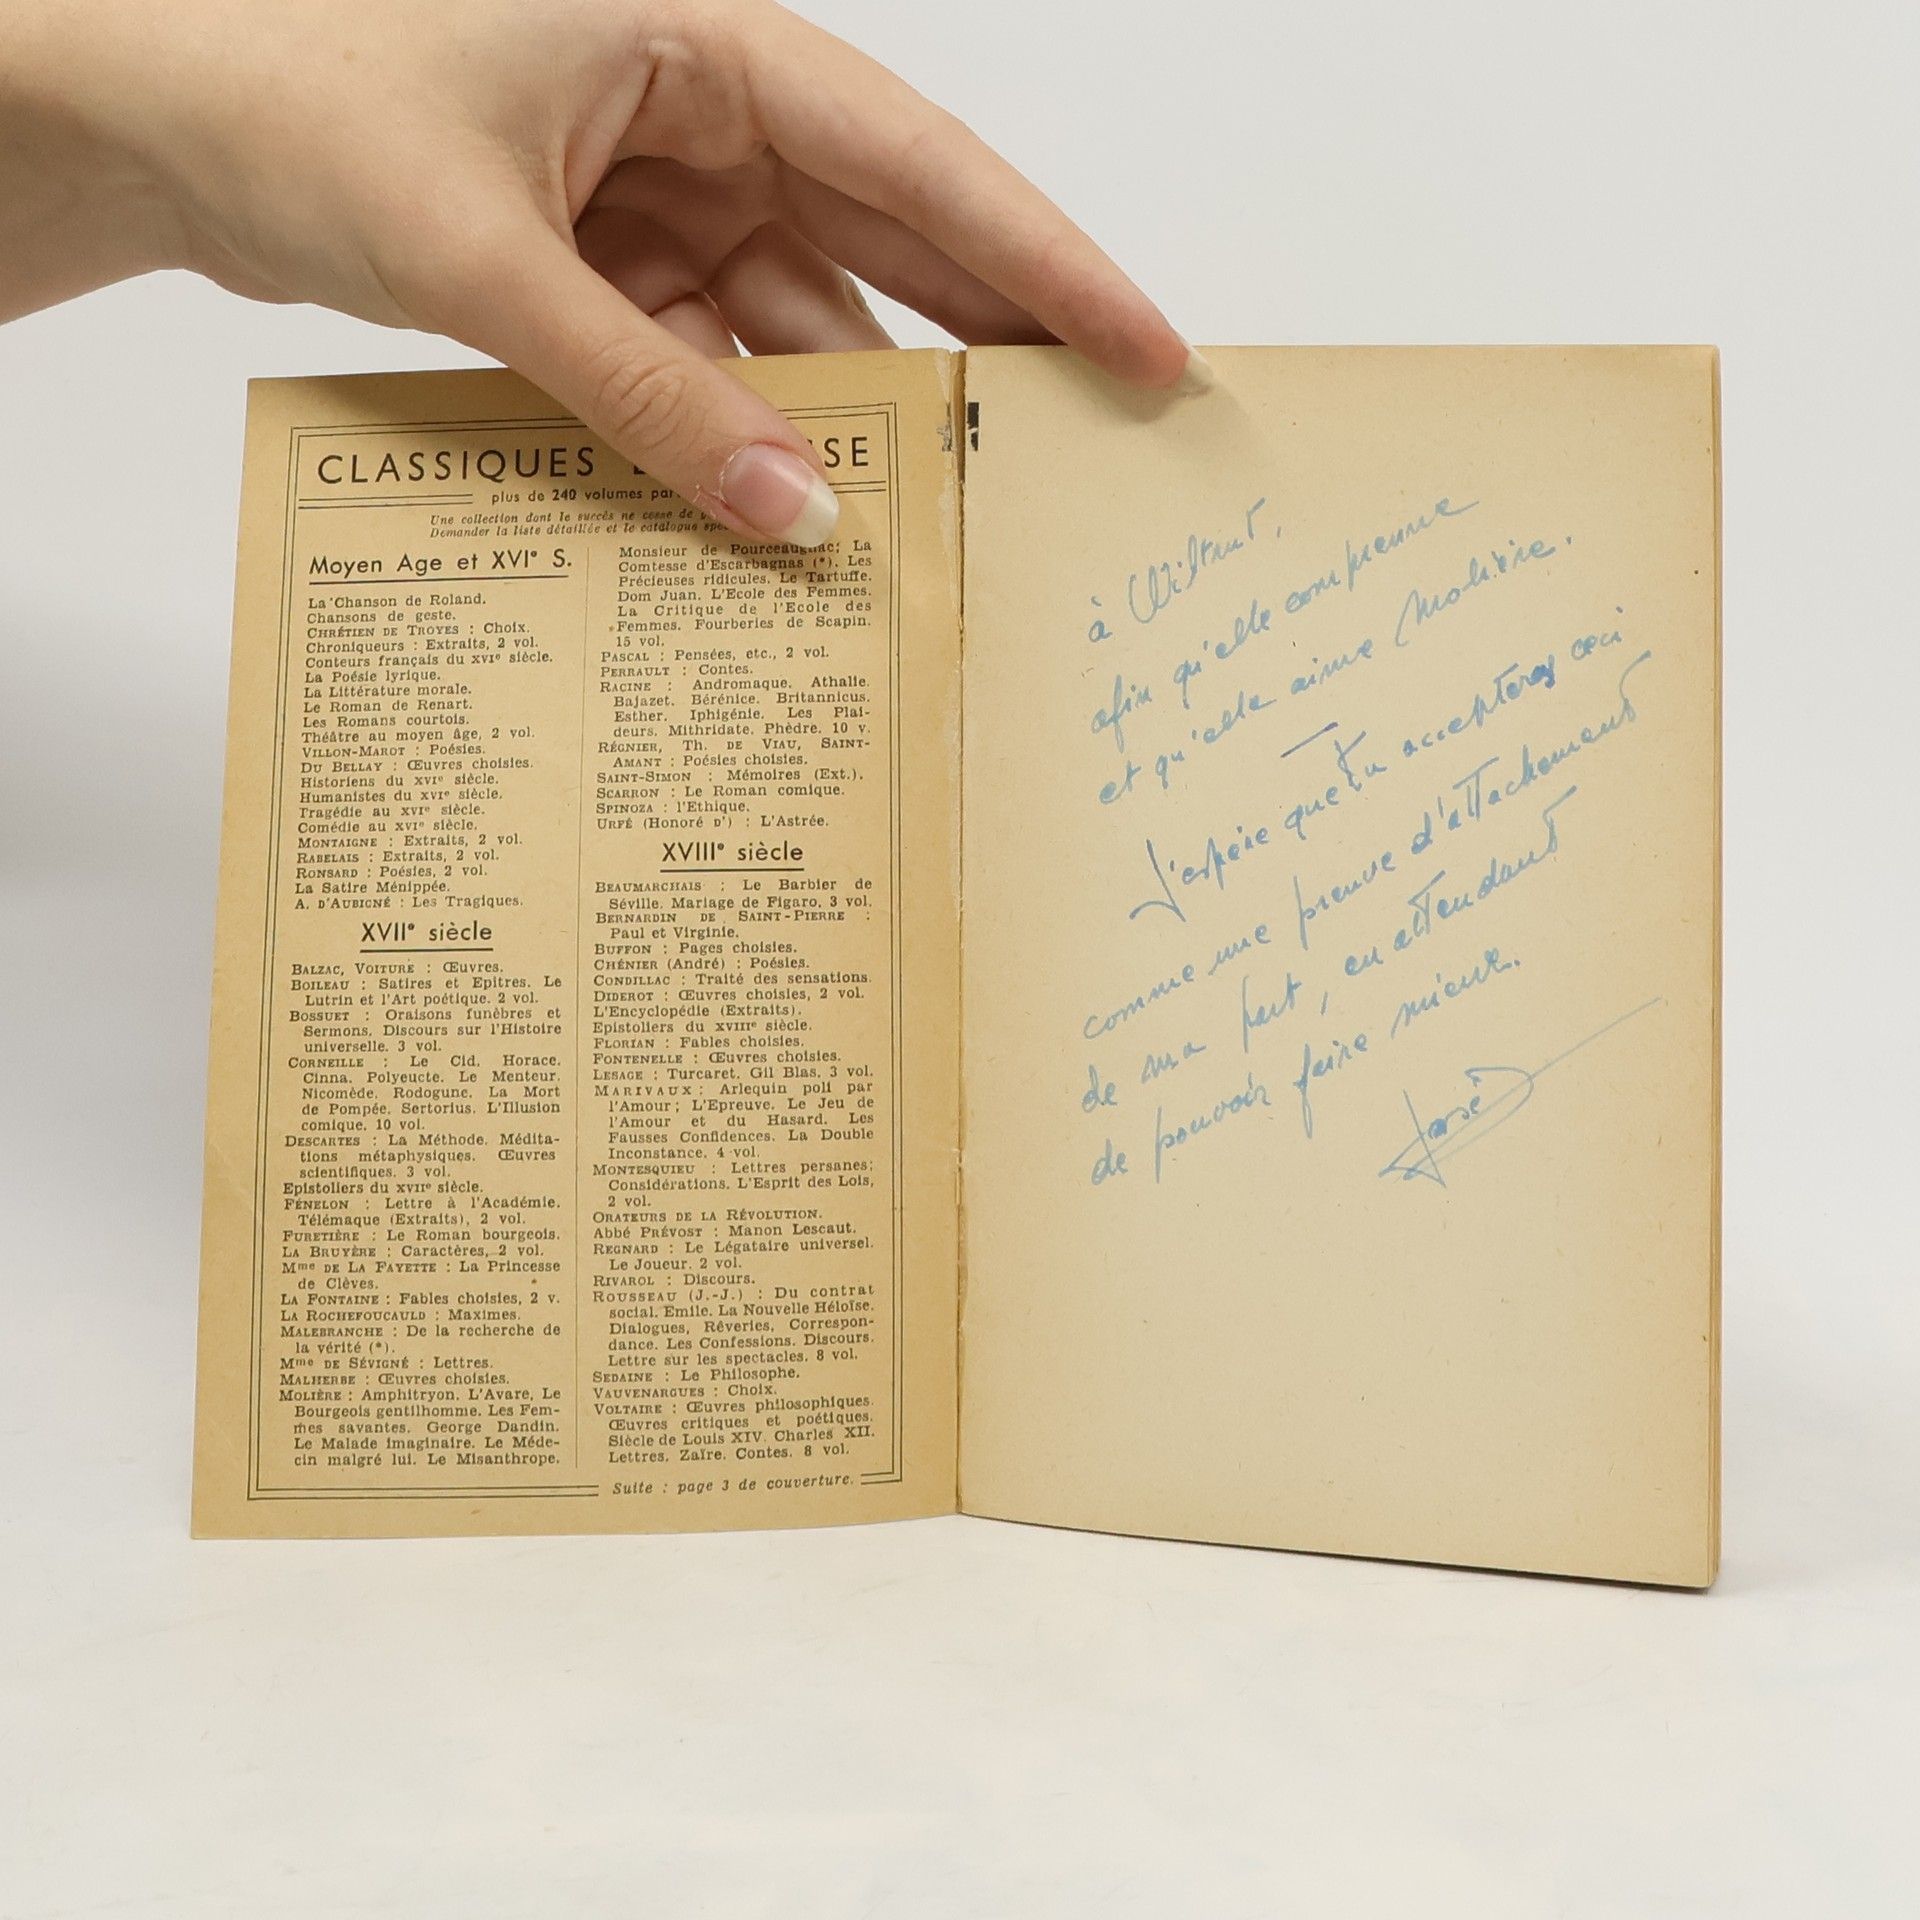 CLASSIQUES SSE
plus de 240 volumes
Une collection dont le succès ne cesse de
Demander la liste détaillée et le catalogue
Moyen Age et XVIᵉ S.
La Chanson de Roland.
Chansons de geste.
CHRÉTIEN DE TROYES : Choix.
Chroniqueurs : Extraits, 2 vol.
Conteurs français du XVIᵉ siècle.
La Poésie lyrique.
La Littérature morale.
Le Roman de Renart.
Les Romans courtois.
Théâtre au moyen âge, 2 vol.
VILLON-MAROT : Poésies.
DU BELLAY : Œuvres choisies.
Historiens du XVIᵉ siècle.
Humanistes du XVIᵉ siècle.
Tragédie au XVIᵉ siècle.
Comédie au XVIᵉ siècle.
MONTAIGNE : Extraits, 2 vol.
RABELAIS : Extraits, 2 vol.
RONSARD : Poésies, 2 vol.
La Satire Ménippée.
A. D'AUBIGNÉ : Les Tragiques.
XVIIᵉ siècle
BALZAC, VOITURE : Œuvres.
BOILEAU : Satires et Epitres. Le
Lutrin et l'Art poétique. 2 vol.
BOSSUET : Oraisons funèbres et
Sermons. Discours sur l'Histoire
universelle. 3 vol.
CORNEILLE : Le Cid. Horace.
Cinna. Polyeucte. Le Menteur.
Nicomède. Rodogune. La Mort
de Pompée. Sertorius. L'Illusion
comique. 10 vol.
DESCARTES : La Méthode. Médita-
tions métaphysiques. Œuvres
scientifiques. 3 vol.
Epistoliers du XVIIᵉ siècle.
FÉNELON : Lettre à l'Académie.
Télémaque (Extraits), 2 vol.
FURETIÈRE : Le Roman bourgeois.
LA BRUYÈRE : Caractères, 2 vol.
Mᵐᵉ DE LA FAYETTE : La Princesse
de Clèves.
LA FONTAINE : Fables choisies, 2 v.
LA ROCHEFOUCAULD : Maximes.
MALEBRANCHE : De la recherche de
la vérité (*).
Mᵐᵉ DE SÉVIGNÉ : Lettres.
MALHERBE : Œuvres choisies.
MOLIÈRE : Amphitryon. L'Avare. Le
Bourgeois gentilhomme. Les Fem-
mes savantes. George Dandin.
Le Malade imaginaire. Le Méde-
cin malgré lui. Le Misanthrope.
Monsieur de Pourceaugnac; La
Comtesse d'Escarbagnas (*). Les
Précieuses ridicules. Le Tartuffe.
Dom Juan. L'Ecole des Femmes.
La Critique de l'Ecole des
Femmes. Fourberies de Scapin.
15 vol.
PASCAL : Pensées, etc., 2 vol.
PERRAULT : Contes.
RACINE : Andromaque. Athalie.
Bajazet. Bérénice. Britannicus.
Esther. Iphigénie. Les Plai-
deurs. Mithridate. Phèdre. 10 v.
RÉGNIER, TH. DE VIAU, SAINT-
AMANT : Poésies choisies.
SAINT-SIMON : Mémoires (Ext.).
SCARRON : Le Roman comique.
SPINOZA : l'Ethique.
URFÉ (Honoré D') : L'Astrée.
XVIIIᵉ siècle
BEAUMARCHAIS : Le Barbier de
Séville. Mariage de Figaro. 3 vol.
BERNARDIN DE SAINT-PIERRE :
Paul et Virginie.
BUFFON : Pages choisies.
CHÉNIER (André) : Poésies.
CONDILLAC : Traité des sensations.
DIDEROT : Œuvres choisies, 2 vol.
L'Encyclopédie (Extraits).
Epistoliers du XVIIIᵉ siècle.
FLORIAN : Fables choisies.
FONTENELLE : Œuvres choisies.
LESAGE : Turcaret. Gil Blas. 3 vol.
MARIVAUX : Arlequin poli par
l'Amour; L'Epreuve. Le Jeu de
l'Amour et du Hasard. Les
Fausses Confidences. La Double
Inconstance. 4 vol.
MONTESQUIEU : Lettres persanes;
Considérations. L'Esprit des Lois,
2 vol.
ORATEURS DE LA RÉVOLUTION.
Abbé PRÉVOST : Manon Lescaut.
REGNARD : Le Légataire universel.
Le Joueur. 2 vol.
RIVAROL : Discours.
ROUSSEAU (J.-J.) : Du contrat
social. Emile. La Nouvelle Héloïse.
Dialogues, Rêveries, Correspon-
dance. Les Confessions. Discours.
Lettre sur les spectacles. 8 vol.
SEDAINE : Le Philosophe.
VAUVENARGUES : Choix.
VOLTAIRE : Œuvres philosophiques.
Œuvres critiques et poétiques.
Siècle de Louis XIV. Charles XII.
Lettres. Zaïre. Contes. 8 vol.
Suite : page 3 de couverture.
à Wiltrut,
afin qu'elle comprenne
et qu'elle aime Molière.
J'espère que tu accepteras ceci
comme une preuve d'attachement
de ma part, en attendant
de pouvoir faire mieux.
José